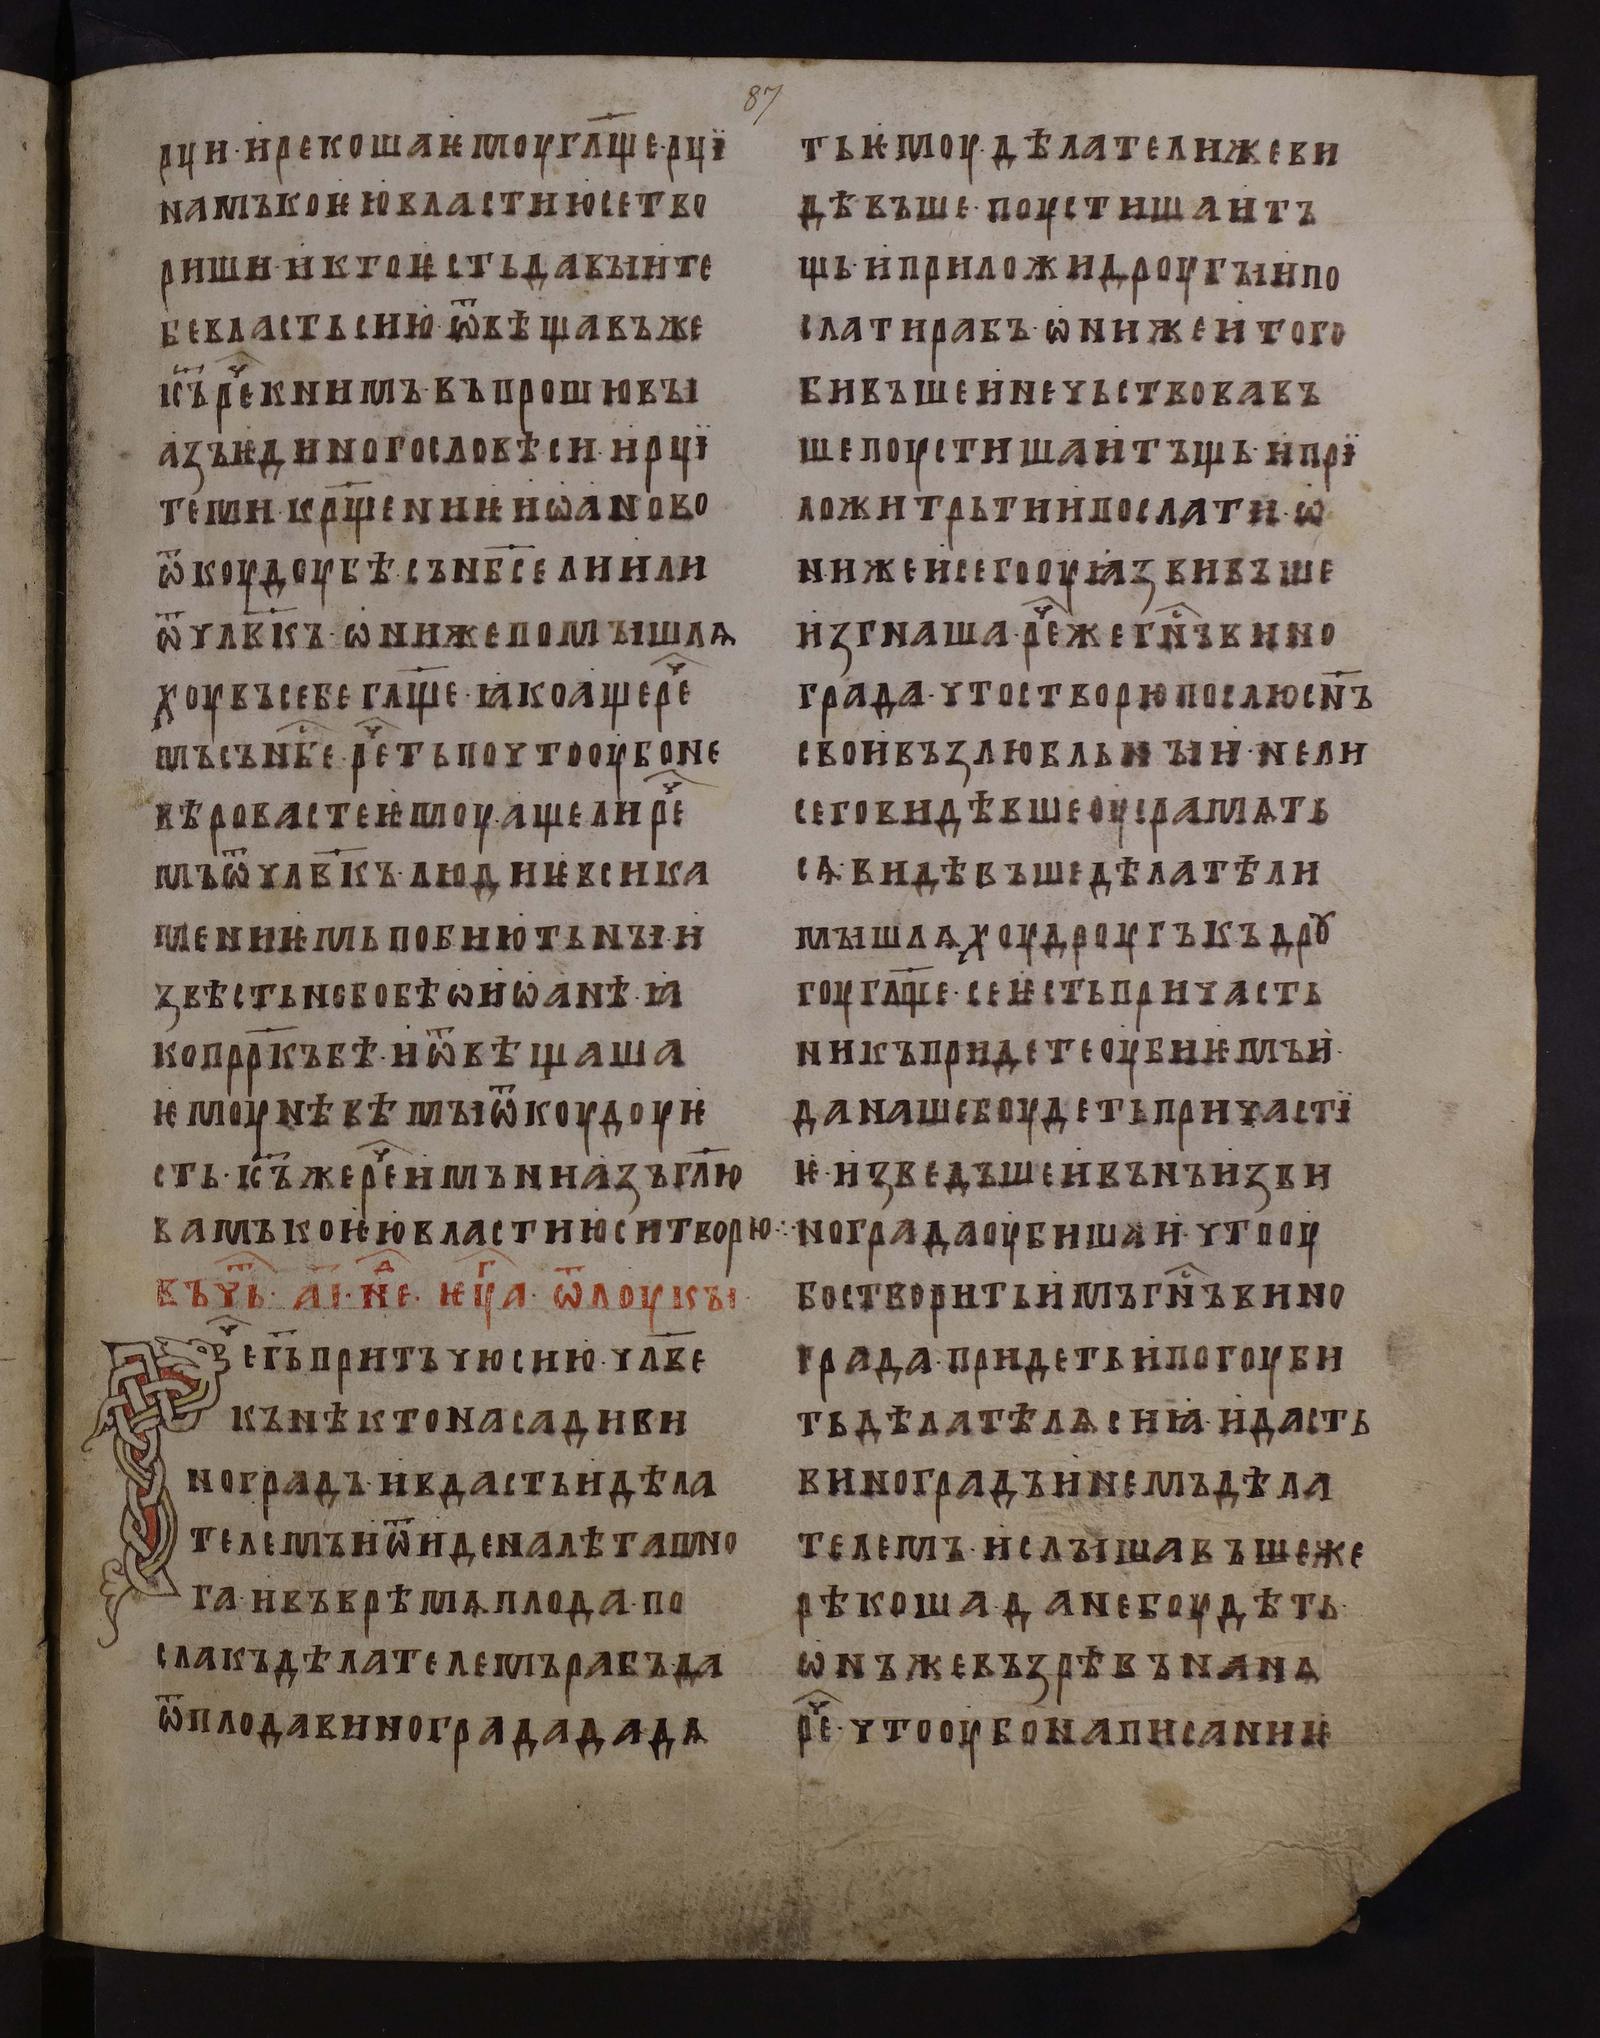 87
рци · и рекошаѥмоугл҃ще · рцї
намъкоѥювластиюсетво
риши · иктоѥстьдавыите
бевластьсию · ѿвѣщавъже
іс҃ъреч҇книмъ · въпрошювы
азъѥдиногословѣси · ирцї
теми · крщ҃ениѥиѡаново
ѿкоудоубѣсънбс҃елиили
ѿчлв҃къ · ѡнижепомышлѧ
хоувъсебегл҃ще · ꙗкоащереч҇
мъсънбс҇е · реч҇тьпочтооубоне
вѣровастеѥмоу · ащелиреч҇
мъѿчлв҃къ · людиѥвсика
мениѥмьпобиютьныи
звѣстьнобобѣѡиѡанѣ · ꙗ
копрр҃къбѣ · иѿвѣщаша
ѥмоуневѣмыѿкоудоуѥ
сть · іс҃ъжереч҇имъниазъгл҃ю
вамъкоѥювластиюситворю ⁘
въчт҇ь · аі · нд҇е · ѥѵ҃га · ѿлоукы
Реч҇егь҃притъчюсию · члв҃е
кънѣктонасадиви
ноградъ · ивдастьидѣла
телемъиѿиденалѣтамно
га · ивъврѣмѧплода · по
слакъдѣлателемърабъда
ѿплодавиноградададѧ
тьѥмоу · дѣлателижеви
дѣвъше · поустишаитъ
щь · иприложидроугыипо
слатирабъ · ѡнижеитого
бивъшеинечьствовавъ
шепоустишаитъщь · ипрї
ложитрьтиипослати · ѡ
нижеисегооуꙗзвивъше
изгнаша · реч҇жегс҇нъвино
града · чтостворюпослюсн҃ъ
своивъзлюбльныи · нели
сеговидѣвшеоусрамѧть
сѧ · видѣвъшедѣлатѣли
мышлѧхоудроугъкъдрꙋ
гоугл҃ще · сеѥстьпричасть
никъпридетеоубиѥмъи ·
данашебоудетьпричастї
ѥ · изведъшеивънъизви
ноградаоубишаи · чтооу
бостворитьимъгс҇нъвино
града · придетьипогоуби
тьдѣлатѣлѧсиꙗ · идасть
виноградъинемъдѣла
телемъ · ислышавъшеже
рѣкоша · данебоудѣть ·
ѡнъжевъзрѣвънанѧ
реч҇ · чтооубонаписаниѥ